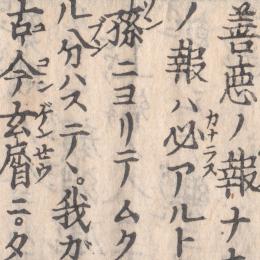 善悪ノ報ナ
ノ報ハ必アルト
孫ニヨリテムク
ル分ハステヽ。我ガ
古今玄暦ニ。タ